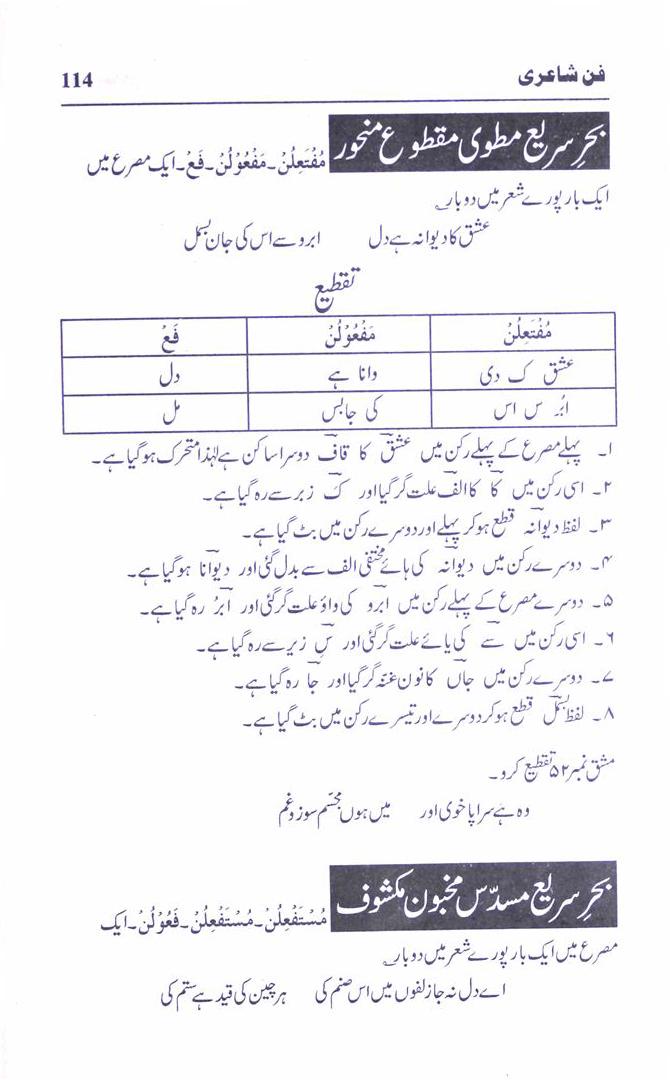 فن شاعری 114
بحرِ سریع مطوی مقطوع منحور مُفْتَعِلُنْ۔ مَفْعُوْلُنْ۔ فَعْ۔ ایک مصرع میں
ایک بار پورے شعر میں دوبار۔
عشق کا دیوانہ ہے دل ابرو سے اس کی جان بسمل
تقطیع
مُفْتَعِلُنْ مَفْعُوْلُنْ فَعْ
عشق ک دی وانا ہے دل
ابُر س اس کی جابس مل
۱۔ پہلے مصرع کے پہلے رکن میں عشق کا قاف دوسرا ساکن ہے لہٰذا متحرک ہوگیا ہے۔
۲۔ اسی رکن میں کا کا الف علت گر گیا اور کَ زبر سے رہ گیا ہے۔
۳۔ لفظ دیوانہ قطع ہوکر پہلے اور دوسرے رکن میں بٹ گیا ہے۔
۴۔ دوسرے رکن میں دیوانہ کی ہائے مختفی الف سے بدل گئی اور دیوانا ہوگیا ہے۔
۵۔ دوسرے مصرع کے پہلے رکن میں ابرو کی واؤ علت گر گئی اور ابرُ رہ گیا ہے۔
۶۔ اسی رکن میں سے کی یائے علت گر گئی اور سِ زیر سے رہ گیا ہے۔
۷۔ دوسرے رکن میں جاں کا نون غنّہ گر گیا اور جا رہ گیا ہے۔
۸۔ لفظ بسمل قطع ہوکر دوسرے اور تیسرے رکن میں بٹ گیا ہے۔
مشق نمبر ۵۲ تقطیع کرو۔
وہ ہے سراپا خوی اور میں ہوں مجسّم سوز و غم
بحرِ سریع مسدّس مخبون مکشوف مُسْتَفْعِلُنْ۔ مُسْتَفْعِلُنْ۔ فَعُوْلُنْ۔ ایک
مصرع میں ایک بار پورے شعر میں دوبار۔
اے دل نہ جا زلفوں میں اس صنم کی ہر چین کی قید ہے ستم کی